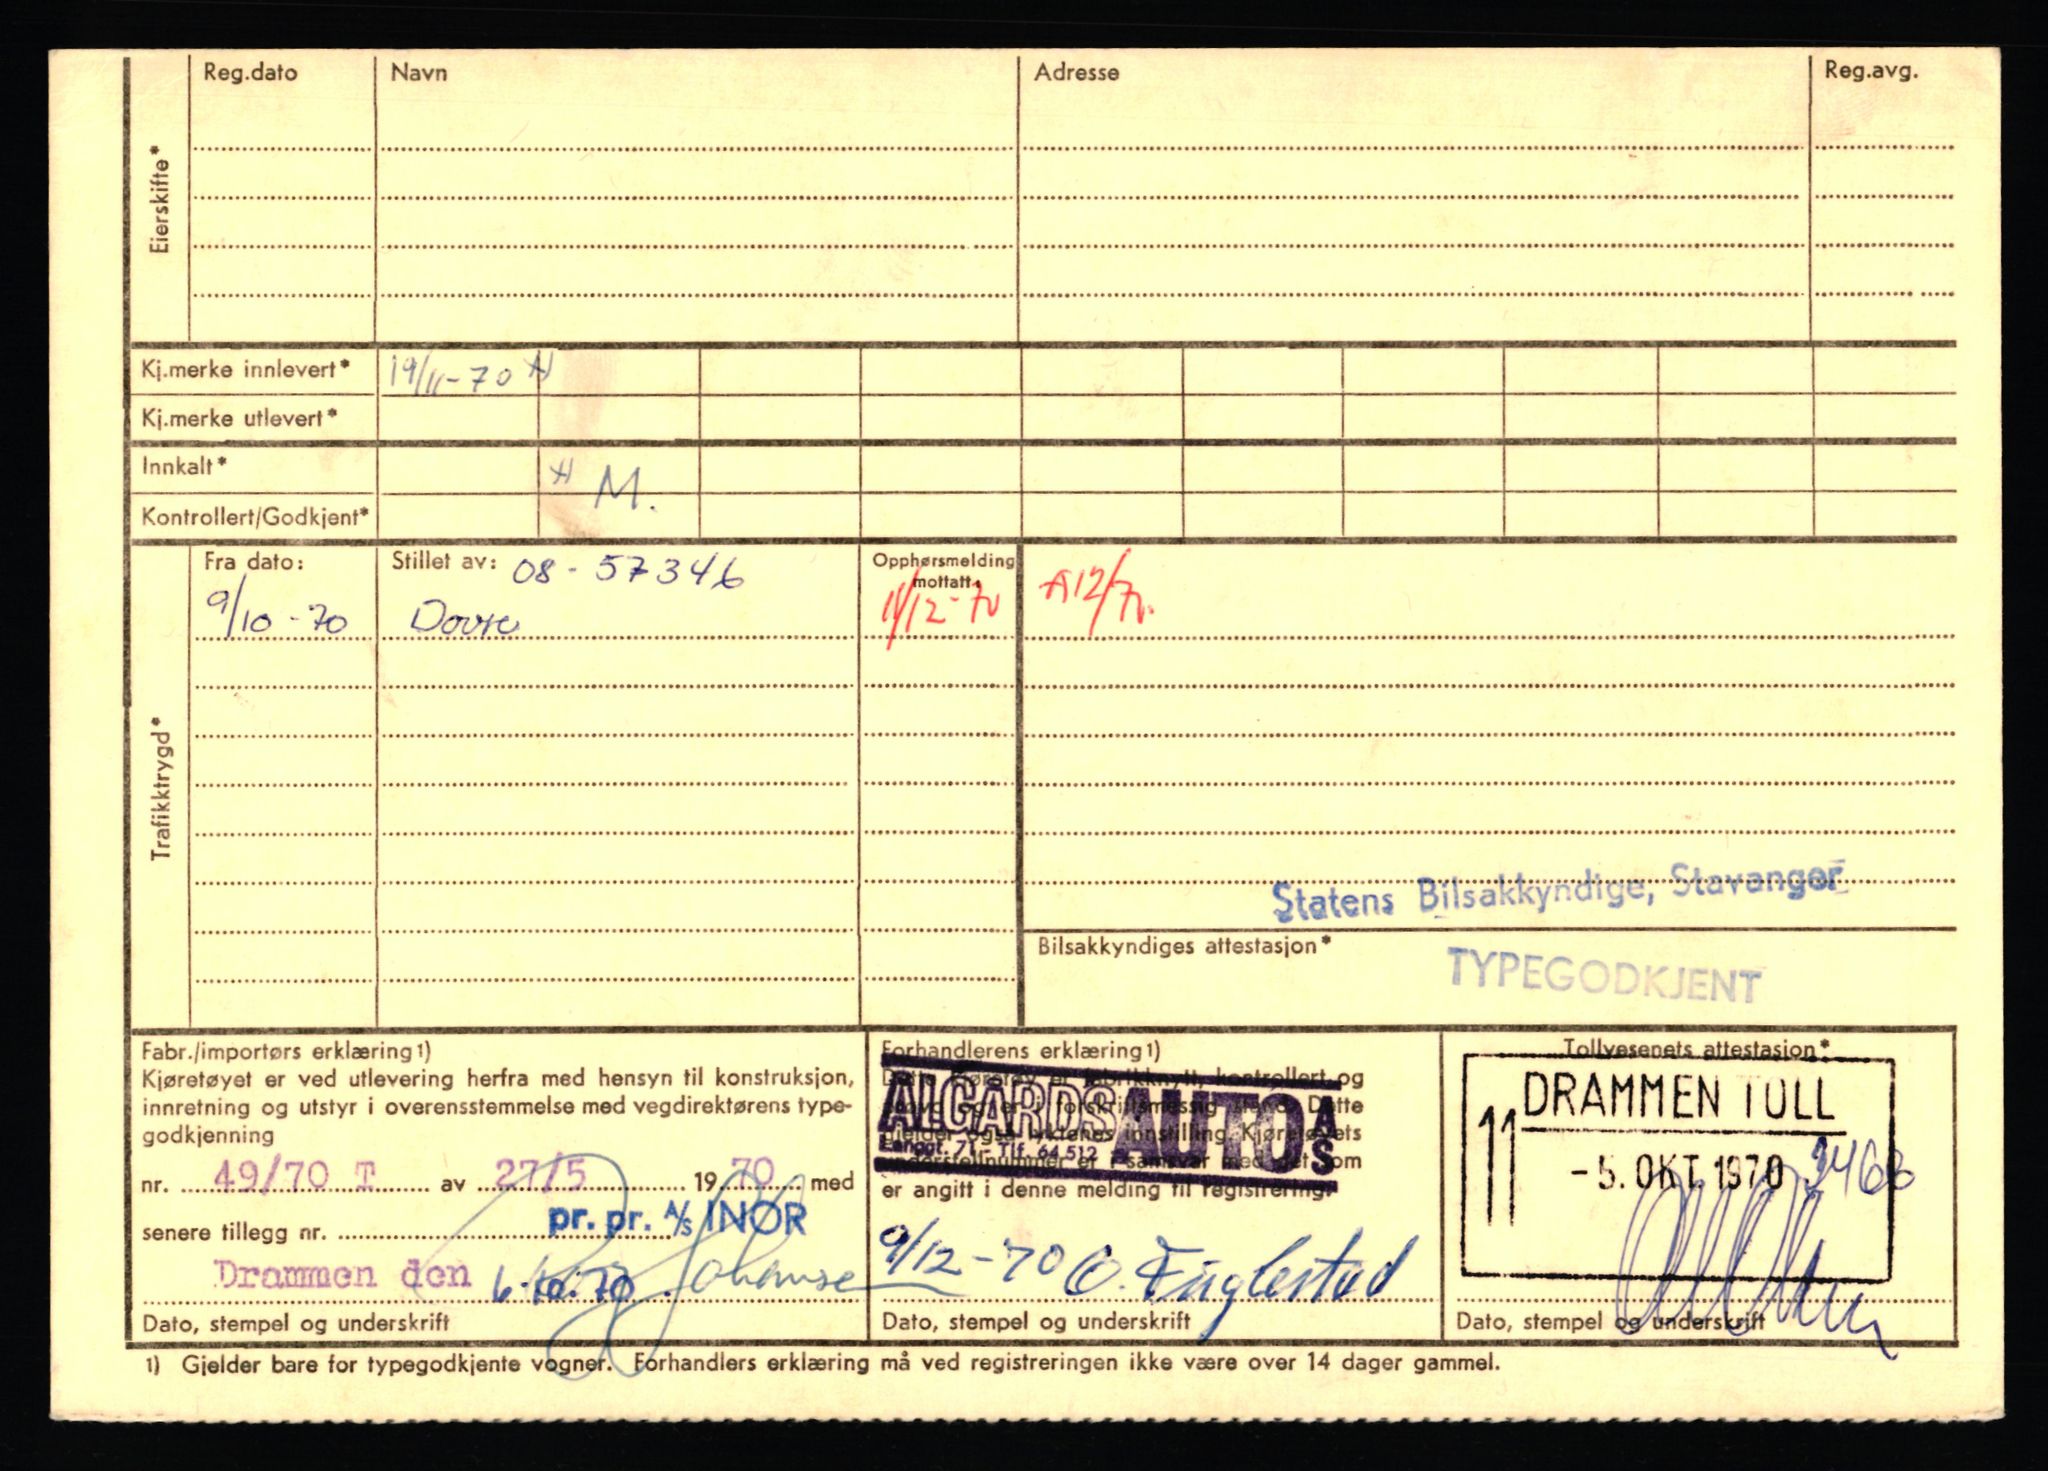 Reg.dato Navn Adresse Reg.avg.
Eierskifte*
Kj.merke innlevert* 19/11-70
Kj.merke utlevert*
Innkalt* M.
Kontrollert/Godkjent*
Trafikktrygd*
Fra dato: Stillet av: 08-57346 Opphørsmelding mottatt:
9/10-70 Dovre 11/12-70 A12/70
Statens Bilsakkyndige, Stavanger
Bilsakkyndiges attestasjon*
TYPEGODKJENT
Fabr./importørs erklæring 1)
Kjøretøyet er ved utlevering herfra med hensyn til konstruksjon,
innretning og utstyr i overensstemmelse med vegdirektørens type-
godkjenning
nr. 49/70 T av 27/5 1970 med
senere tillegg nr. pr. pr. A/S INOR
Drammen den 6-10-70 Johanse
Dato, stempel og underskrift
Forhandlerens erklæring 1)
Dette kjøretøy er fabrikknytt, kontrollert og
prøvd og er i forskriftsmessig stand. Dette
gjelder også lyktenes innstilling. Kjøretøyets
understellnummer er i samsvar med det som
er angitt i denne melding til registrering.
ÅLGÅRDS AUTO A/S
Langgt. 71 - Tlf. 64 512
9/12-70 O. Fuglestad
Dato, stempel og underskrift
Tollvesenets attestasjon*
DRAMMEN TOLL
11 -5. OKT. 1970 3468
Dato, stempel og underskrift
1) Gjelder bare for typegodkjente vogner. Forhandlers erklæring må ved registreringen ikke være over 14 dager gammel.